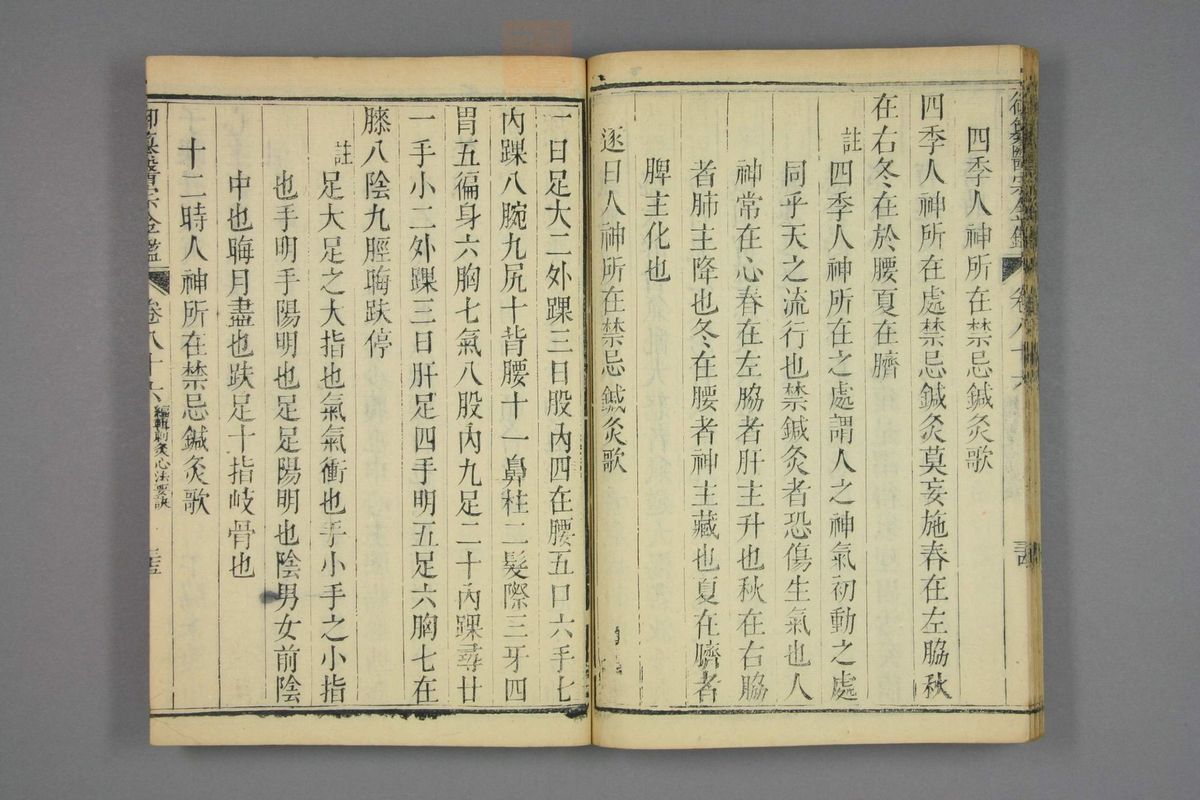 御纂醫宗金鑑 卷八十六
四季人神所在禁忌鍼灸歌
四季人神所在處禁忌鍼灸莫妄施春在左脇秋
在右冬在於腰夏在臍
註四季人神所在之處謂人之神氣初動之處
同乎天之流行也禁鍼灸者恐傷生氣也人
神常在心春在左脇者肝主升也秋在右脇
者肺主降也冬在腰者神主藏也夏在臍者
脾主化也
逐日人神所在禁忌鍼灸歌
一日足大二外踝三日股內四在腰五口六手七
內踝八腕九尻十背腰十一鼻柱二髮際三牙四
胃五徧身六胸七氣八股內九足二十內踝尋廿
一手小二外踝三日肝足四手明五足六胸七在
膝八陰九脛晦趺停
註足大足之大指也氣氣衝也手小手之小指
也手明手陽明也足足陽明也陰男女前陰
中也晦月盡也趺足十指岐骨也
十二時人神所在禁忌鍼灸歌
御纂醫宗金鑑 卷八十六 編輯刺灸心法要訣